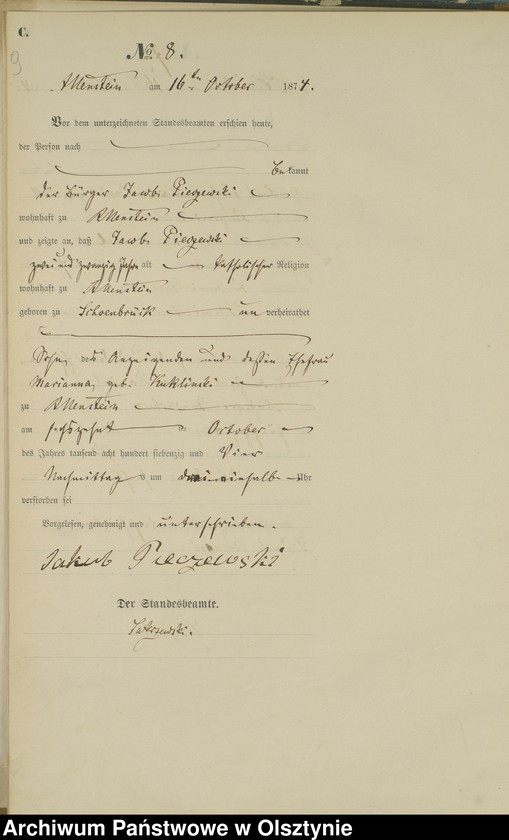 C.
9
№ 8.
Allenstein am 16ten October 1874.
Vor dem unterzeichneten Standesbeamten erschien heute,
der Person nach
bekannt
der Bürger Jacob Pieczewski
wohnhaft zu Allenstein
und zeigte an, daß Jacob Pieczewski
zwei und zwanzig Jahre alt katholischer Religion
wohnhaft zu Allenstein
geboren zu Schoenbrück unverheirathet
Sohn des Anzeigenden und dessen Ehefrau
Marianna, geb. Kuklinski
zu Allenstein
am sechszehnt October
des Jahres tausend acht hundert siebenzig und Vier
Nachmittag s um Uhr
verstorben sei
Vorgelesen, genehmigt und unterschrieben.
Jakub Pieczewski
Der Standesbeamte.
Archiwum Państwowe w Olsztynie